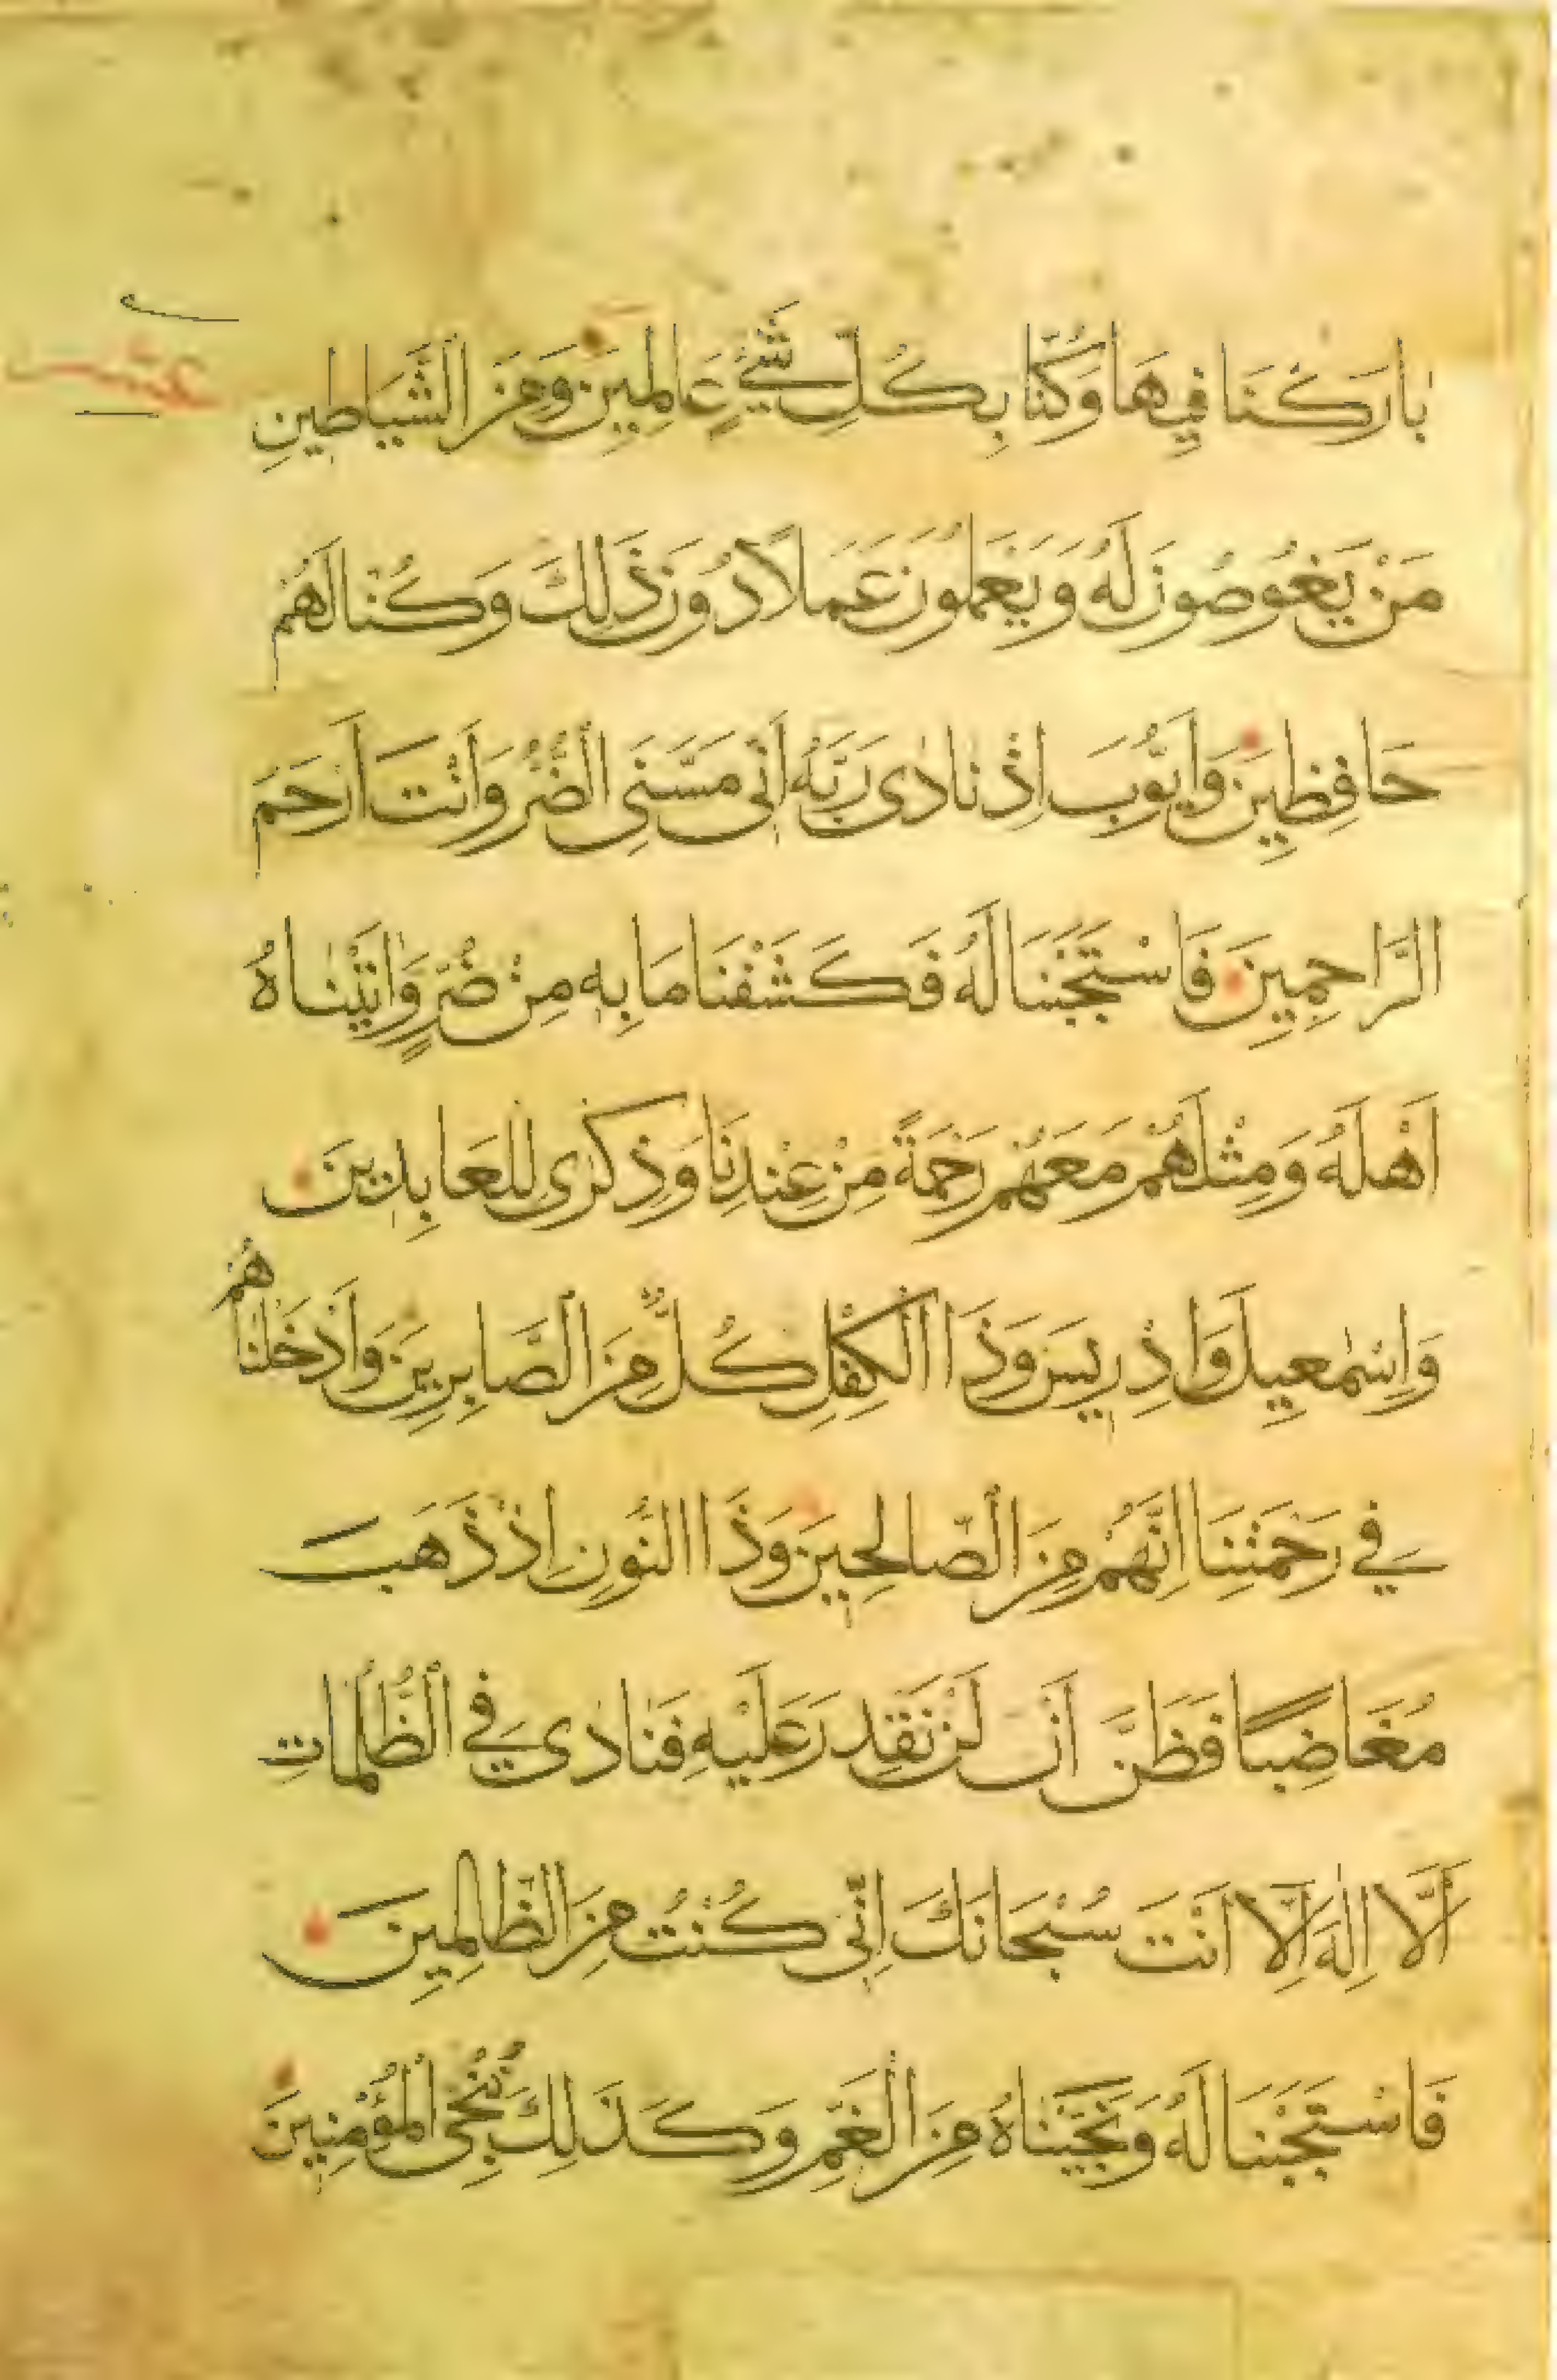 بَارَكْنَا فِيهَا وَكُنَّا بِكُلِّ شَيْءٍ عَالِمِينَ وَمِنَ الشَّيَاطِينِ
عشر
مَنْ يَغُوصُونَ لَهُ وَيَعْمَلُونَ عَمَلًا دُونَ ذَلِكَ وَكُنَّا لَهُمْ
حَافِظِينَ وَاَيُّوبَ اِذْ نَادَى رَبَّهُ اَنِّى مَسَّنِىَ الضُّرُّ وَاَنْتَ اَرْحَمُ
الرَّاحِمِينَ فَاسْتَجَبْنَا لَهُ فَكَشَفْنَا مَا بِهِ مِنْ ضُرٍّ وَاٰتَيْنَاهُ
اَهْلَهُ وَمِثْلَهُمْ مَعَهُمْ رَحْمَةً مِنْ عِنْدِنَا وَذِكْرَى لِلْعَابِدِينَ
وَاِسْمٰعِيلَ وَاِدْرِيسَ وَذَا الْكِفْلِ كُلٌّ مِنَ الصَّابِرِينَ وَاَدْخَلْنَاهُمْ
فِي رَحْمَتِنَا اِنَّهُمْ مِنَ الصَّالِحِينَ وَذَا النُّونِ اِذْ ذَهَبَ
مُغَاضِبًا فَظَنَّ اَنْ لَنْ نَقْدِرَ عَلَيْهِ فَنَادَى فِي الظُّلُمَاتِ
اَلَّا اِلٰهَ اِلَّا اَنْتَ سُبْحَانَكَ اِنِّى كُنْتُ مِنَ الظَّالِمِينَ
فَاسْتَجَبْنَا لَهُ وَنَجَّيْنَاهُ مِنَ الْغَمِّ وَكَذَلِكَ نُنْجِى الْمُؤْمِنِينَ